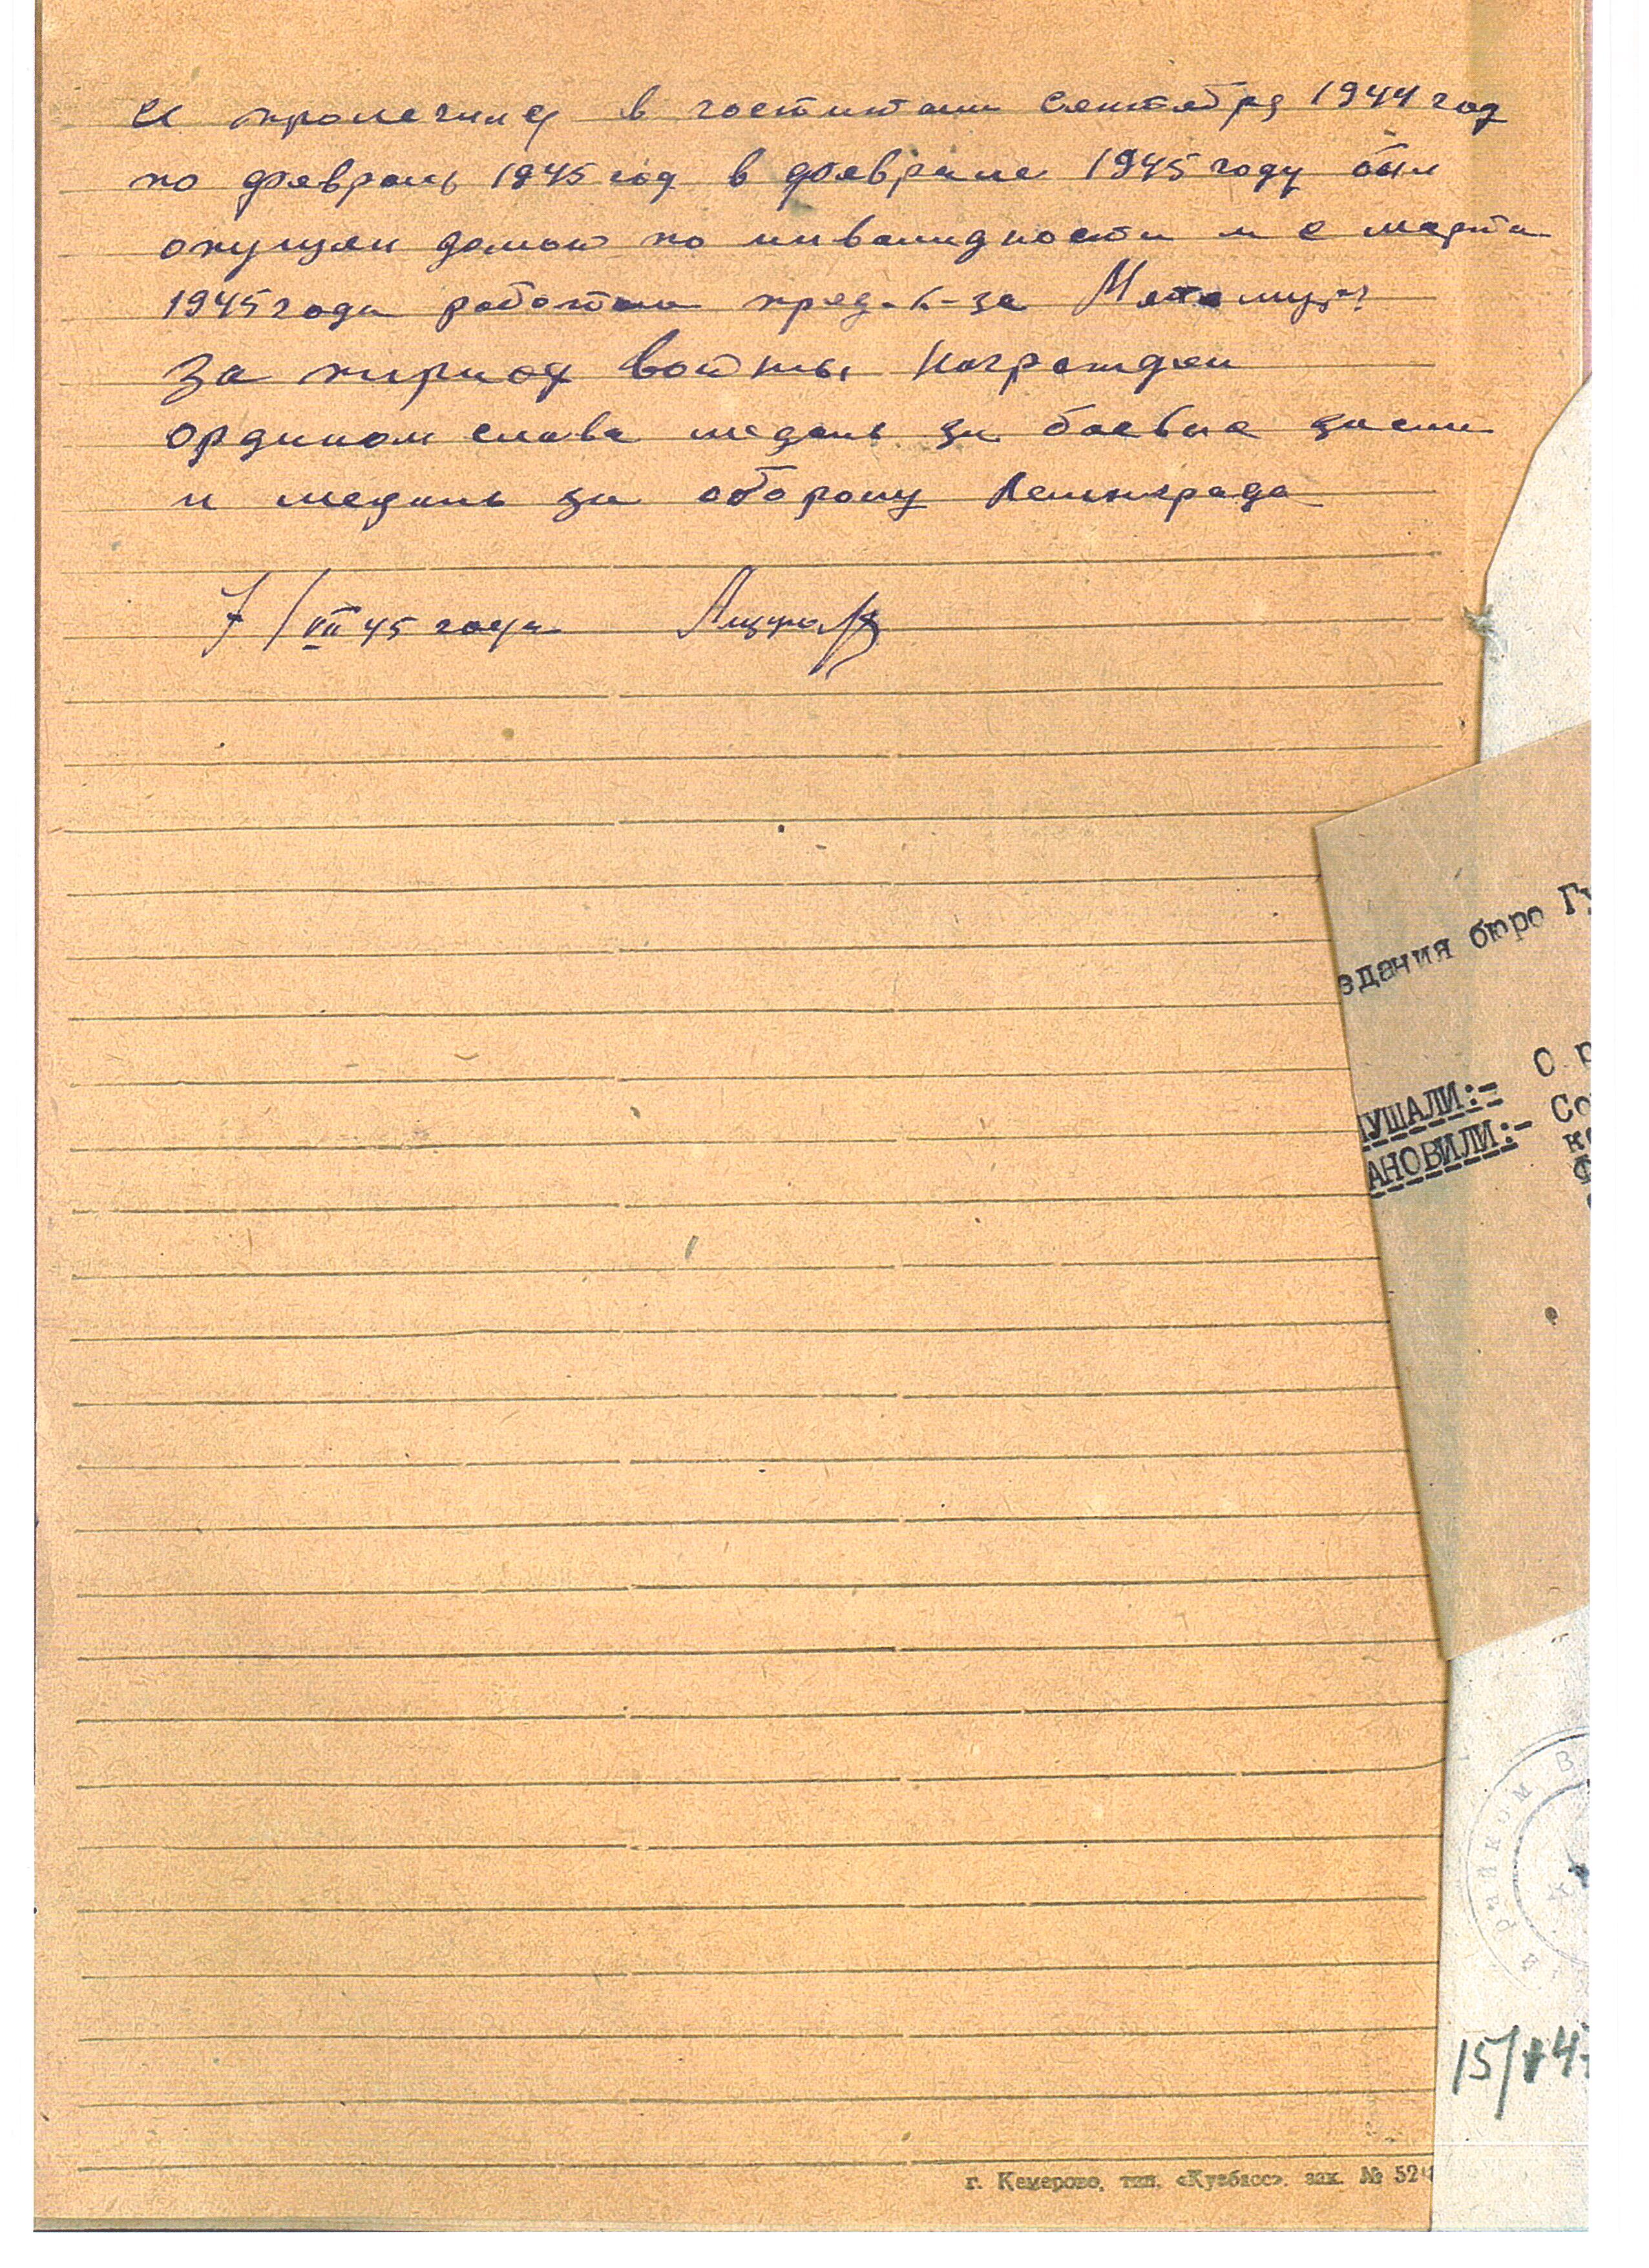 и пролечился в госпитали сентября 1944 год
по февраль 1945 год в феврале 1945 году был
опущен домой по инвалидности и с марта
1945 года работаю пред. к-за Металлург
За пириод войны награжден
ордином слава медаль за боевые заслуги
и медаль за оборону Ленинграда
7/VII 45 года
едания бюро Гу
О р
ЛУШАЛИ:-
АНОВИЛИ:- Со
РАЙКОМ В
15/
г. Кемерово, тип. «Кузбасс». зак. № 52